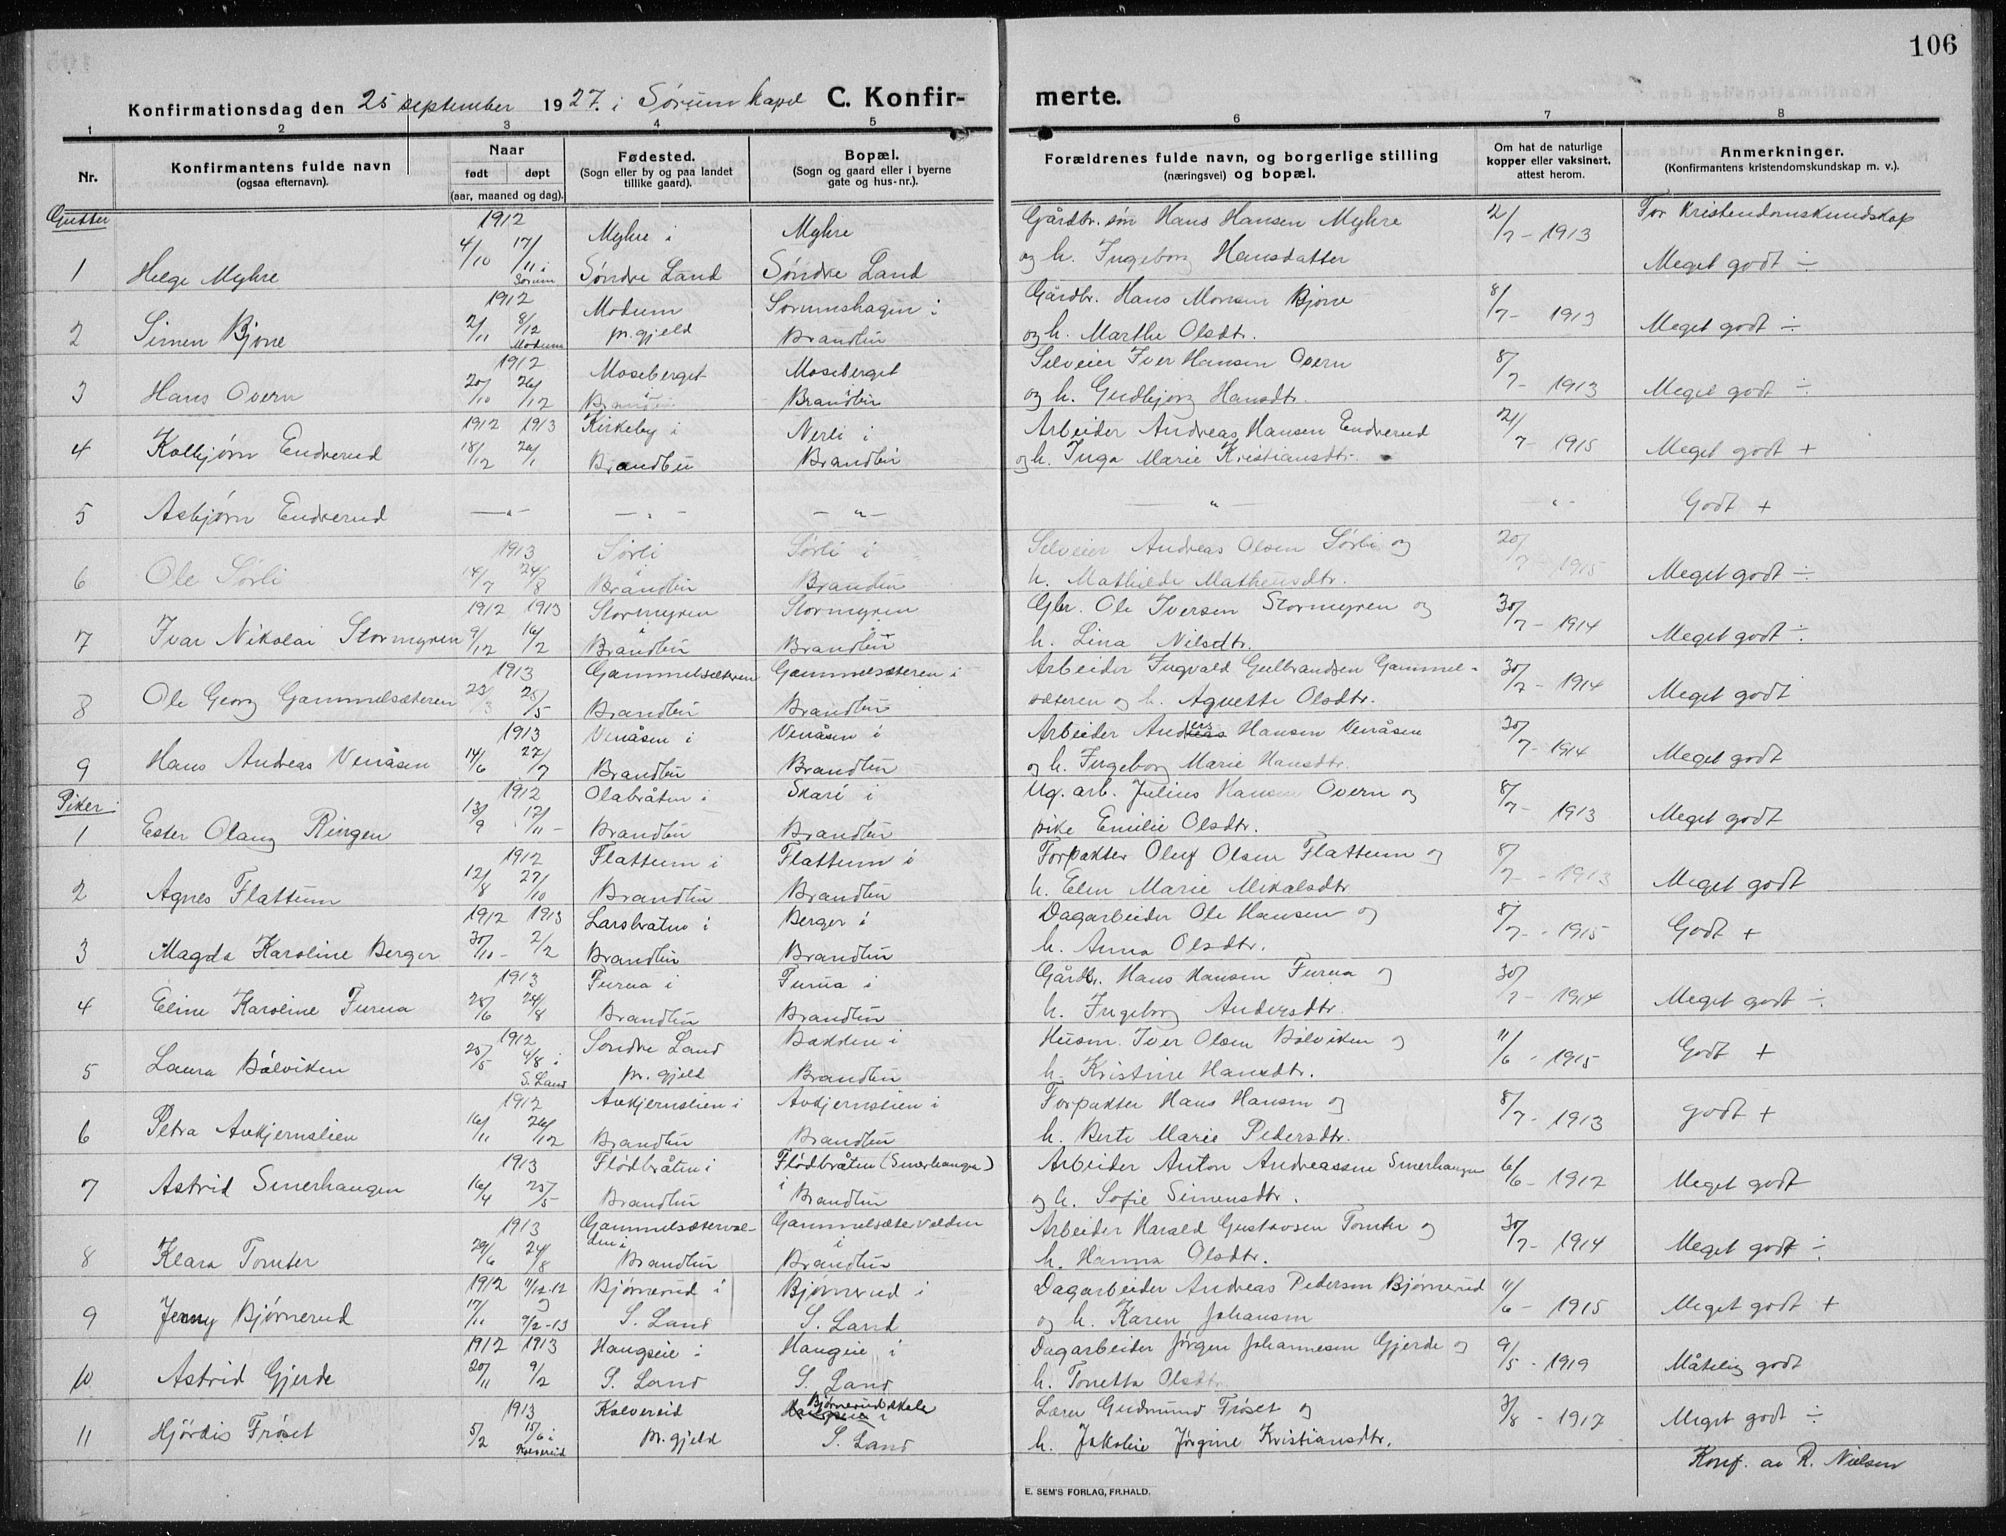 106
Konfirmationsdag den 25 september 1927. i Sørum kapel C. Konfir-merte.
1 2 3 4 5 6 7 8
Nr. Konfirmantens fulde navn (ogsaa efternavn). Naar født døpt (aar, maaned og dag). Fødested. (Sogn eller by og paa landet tillike gaard). Bopæl. (Sogn og gaard eller i byerne gate og hus-nr.). Forældrenes fulde navn, og borgerlige stilling (næringsvei) og bopæl. Om hat de naturlige kopper eller vaksinert, attest herom. Anmerkninger. (Konfirmantens kristendomskundskap m. v.).
Gutter
1912 Myhre i Myhre Gårdbr. søn Hans Hansen Myhre 2/7 - 1913 For Kristendomskundskap
1 Helge Myhre 4/10 17/11 i Sørum Søndre Land Søndre Land og h. Ingeborg Hansdatter Meget godt ÷
1912 Modum Sørumshagen i Gårdbr. Hans Monsen Bjøne 8/7 - 1913
2 Simen Bjøne 2/11 8/12 Modum pr. gjeld Brandbu og h. Marthe Olsdtr. Meget godt ÷
1912 Moseberget Moseberget Selveier Iver Hansen Overn 8/7 - 1913
3 Hans Overn 20/10 26/12 i Brandbu Brandbu og h. Gudbjørg Hansdtr. Meget godt ÷
1912 1913 Kirkeby i Nerli i Arbeider Andreas Hansen Endrerud 21/7 - 1915
4 Kolbjørn Endrerud 18/12 26/1 Brandbu Brandbu og h. Inga Marie Kristiansdtr. Meget godt +
5 Asbjørn Endrerud - " - - " - - " - - " - - " - Godt +
1913 Sørli Sørli i Selveier Andreas Olsen Sørli og 20/7 - 1915
6 Ole Sørli 14/7 24/8 i Brandbu Brandbu h. Mathilde Matheusdtr. Meget godt ÷
1912 1913 Stormyren Stormyren Gbr. Ole Iversen Stormyren og 30/7 - 1914
7 Ivar Nikolai Stormyren 9/12 16/2 i Brandbu Brandbu h. Lina Nilsdtr. Meget godt ÷
1913 Gammelsæteren Gammelsæteren i Arbeider Ingvald Gulbrandsen Gammel- 30/7 - 1914
8 Ole Georg Gammelsæteren 23/3 25/5 Brandbu Brandbu sæteren og h. Agnette Olsdtr. Meget godt
1913 Venåsen i Venåsen i Arbeider Anders Hansen Venåsen 30/7 - 1914
9 Hans Andreas Venåsen 14/6 27/7 Brandbu Brandbu og h. Ingeborg Marie Hansdtr. Meget godt
Piker
1912 Olabråten i Skari i Ug. arb. Julius Hansen Overn og 8/7 - 1913
1 Ester Olaug Ringen 13/9 17/11 - Brandbu Brandbu pike Emilie Olsdtr. Meget godt
1912 Flattum i Flattum i Forpakter Oluf Olsen Flattum og 8/7 - 1913
2 Agnes Flattum 12/8 27/10 Brandbu Brandbu h. Elen Marie Mikalsdtr Meget godt
1912 1913 Larsbråten i Berger i Dagarbeider Ole Hansen og 8/7 - 1915
3 Magda Karoline Berger 30/10 - 2/2 Brandbu Brandbu h. Anna Olsdtr. Godt +
1913 Furua i Furua i Gårdb. Hans Hansen Furua og 30/7 - 1914
4 Eline Karoline Furua 28/6 24/8 Brandbu Brandbu h. Ingeborg Andersdtr. Meget godt ÷
1912 Søndre Land Bakken i Husm. Iver Olsen Bølviken og 11/6 - 1915
5 Laura Bølviken 25/5 4/8 i S. Land pr. gjeld Brandbu h. Kristine Hansdtr. Godt +
1912 Avkjernslien i Avkjernslien i Forpakter Hans Hansen og 8/7 - 1913
6 Petra Avkjernslien 16/11 26/12 Brandbu Brandbu h. Berte Marie Pedersdtr. godt +
1913 Flødbråten i Flødbråten (Smerhaugen) Arbeider Anton Andreassen Smerhaugen 6/6 - 1912
7 Astrid Smerhaugen 16/4 25/5 Brandbu i Brandbu og h. Sofie Simensdtr. Meget godt
1913 Gammelsæterval- Gammelsætervolden Arbeider Harald Gustavsen Tomter og 30/7 - 1914
8 Klara Tomter 29/6 24/8 den i Brandbu i Brandbu h. Hanna Olsdtr. Meget godt ÷
1912 11/12-12 Bjørnerud i Bjørnerud i Dagarbeider Andreas Pedersen Bjørnerud 11/6 - 1915
9 Jenny Bjørnerud 17/11 og 9/2-13 S. Land S. Land og h. Karen Johansen Meget godt +
1912 1913 Haugseie i Haugeie i Dagarbeider Jørgen Johannesen Gjerde og 9/5 - 1919
10 Astrid Gjerde 20/11 9/2 S. Land S. Land h. Tonetta Olsdtr. Måtelig godt
1913 Kolvereid Bjørnerud skole i Lærer Gudmund Frøset og 3/8 - 1917
11 Hjørdis Frøset 5/2 15/6 i Kolvereid pr. gjeld S. Land h. Jakobie Jørgine Kristiansdtr. Meget godt ÷
Konf. av R. Nielsen
E. SEM'S FORLAG, FR.HALD.